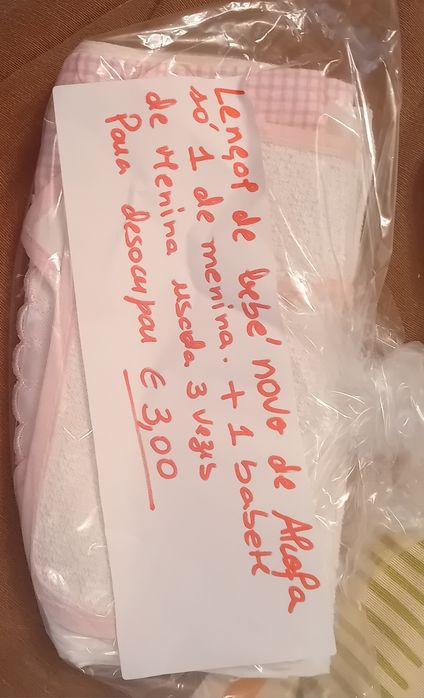 Lençol de bebé novo de Alcofa
só 1 de menina. + 1 babete
de menina usada 3 vezes
Para desocupar € 3,00